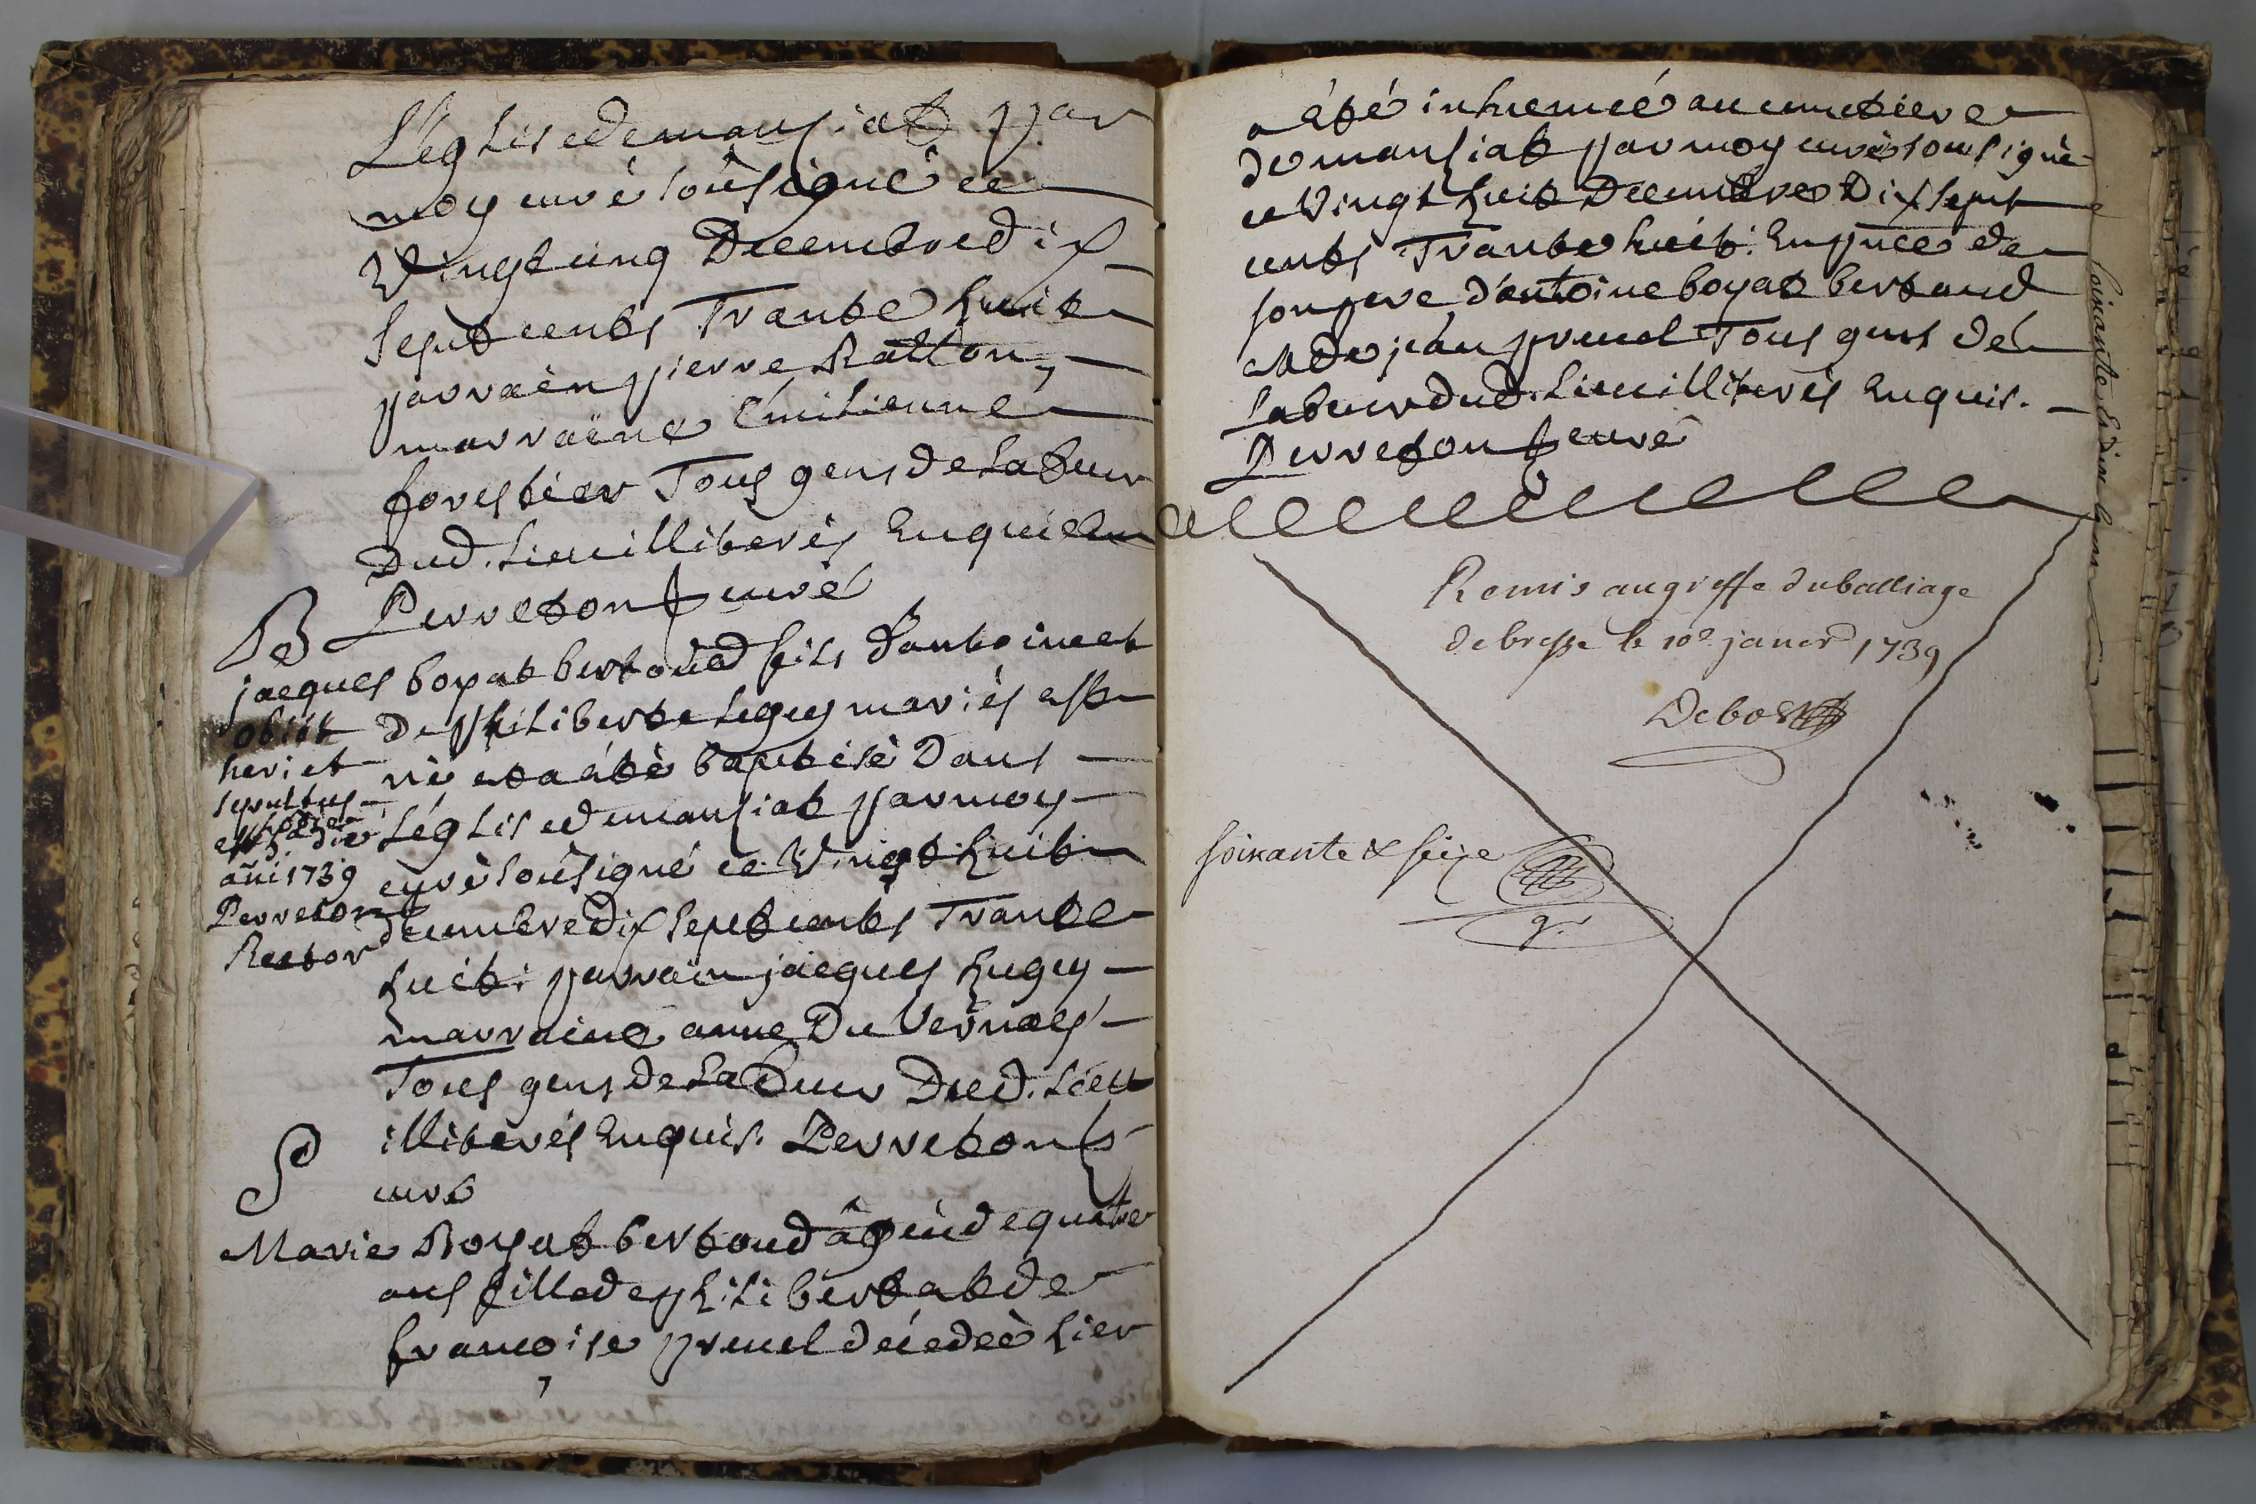 L'église de mansiat par
moy curé soùsigné ce
Vingt cinq Decembre dix
sept cents Trante huit
parraèn pierre Rallon,
marraène Emilienne
forestier Tous gens de Labeur
Dud. Lieu illiterés Enquis
Perreton curé
B
jacques boyat bertoud fils d'antoine et
de philiberte Leguy mariés est
né et a été baptisé Dans
L'églis de mansiat par moy
curé soùsigné ce Vingt huit
decembre Dix sept cents Trante
huit. parrain jacques huguy
marraine anne Du Vernaes
Tous gens de Labeur Dud. Lieu
illiterés Enquis. Perreton
curé
obiit
heri et
sepultus
est hodie
añi 1739
Perreton
Rector
S
Marie Boyat bertoud âgéé de quatre
ans fille de philibert et de
françoise pruel décedeè hier
a été inhumeé au cimetiere
de mansiat par moy curé sousigné
ce Vingt huit Decembre Dix sept
cents Trante huit. En pñce de
son pere d'antoine boyat bertoud
et de jean pruel Tous gens de
Labeur dud. Lieu illiterés Enquis.
Perreton curé
Remis au greffe du balliage
de bresse le 10e janer 1739
Debost
soixante & seize